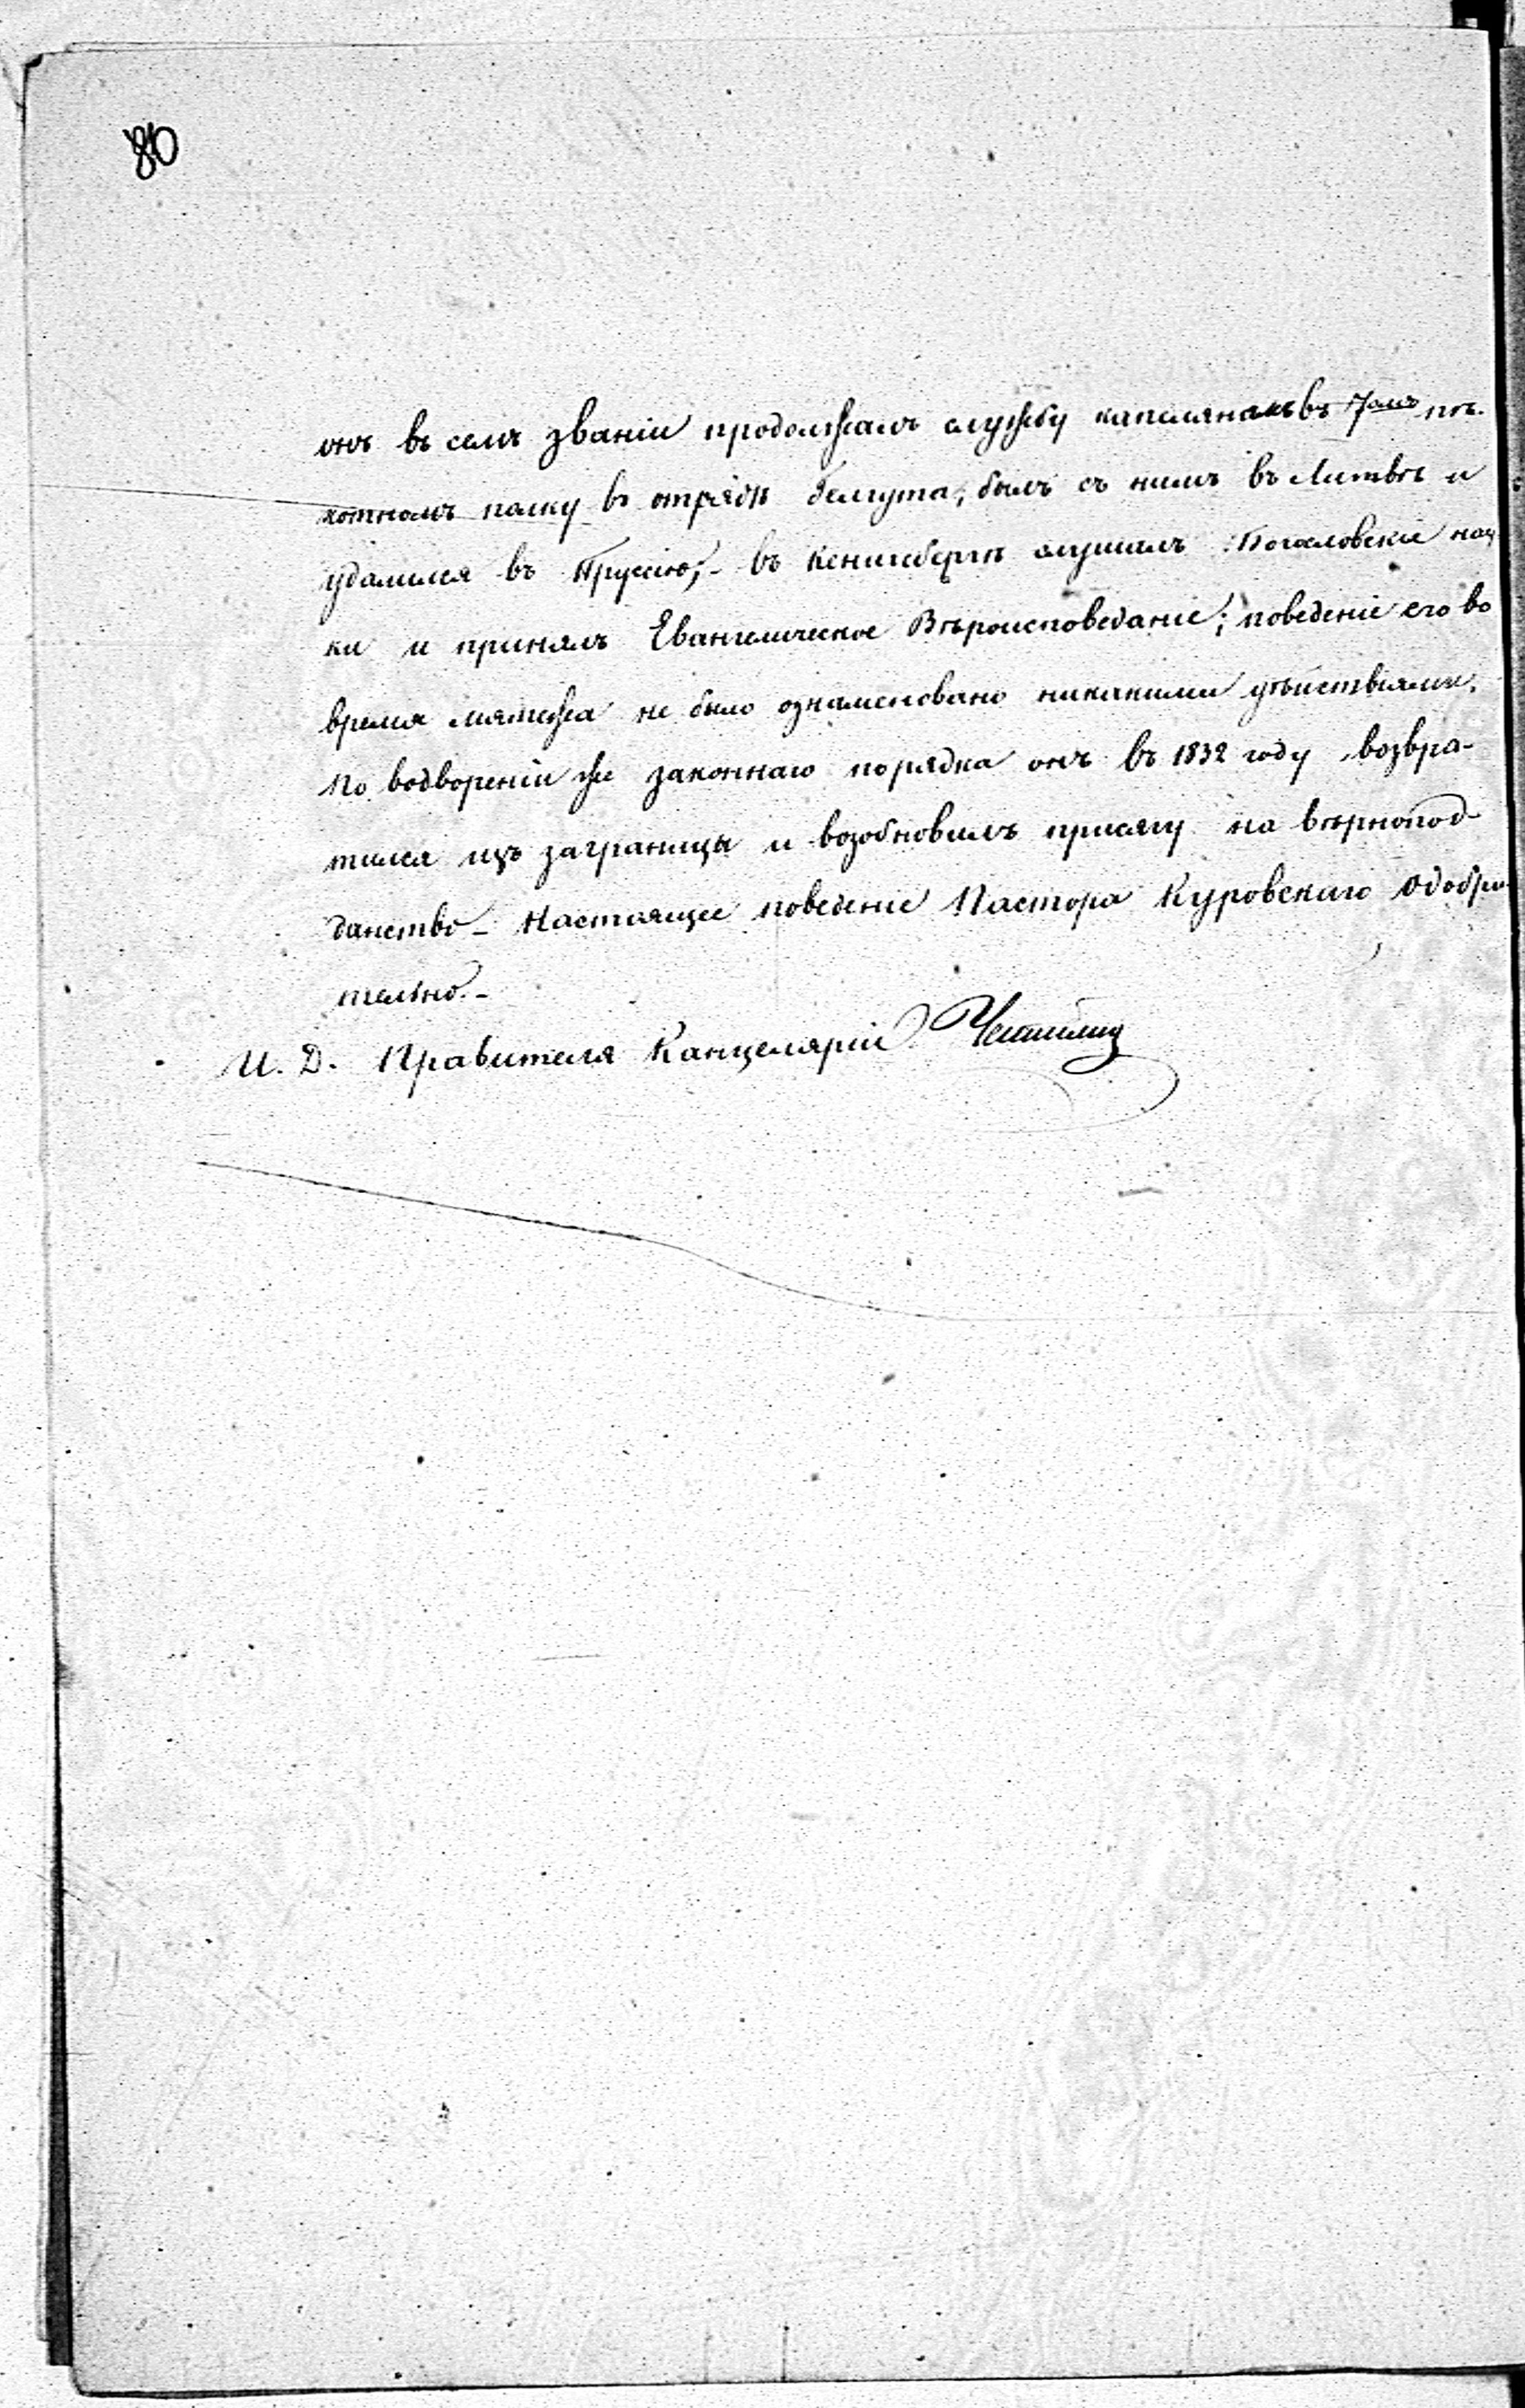 80
онъ въ семъ званіи продолжалъ службу капеляномъ въ 7омъ пѣ-
хотномъ полку въ отрядѣ Гелгута, былъ съ нимъ въ Литвѣ и
удалился въ Пруссію,- въ Кенигсбергѣ слушалъ Богословскіе нау
ки и принялъ Евангелическое Вѣроисповеданіе; поведеніе его во
время мятежа не было ознаменовано никакими дѣйствіями.
По водвореніи же законнаго порядка онъ въ 1832 году возвра-
тился изъ заграницы и возобновилъ присягу на вѣрнопод-
данство- Настоящее поведеніе Пастора Куровскаго одобри-
тельно.-
И. Д. Правителя Канцеляріи